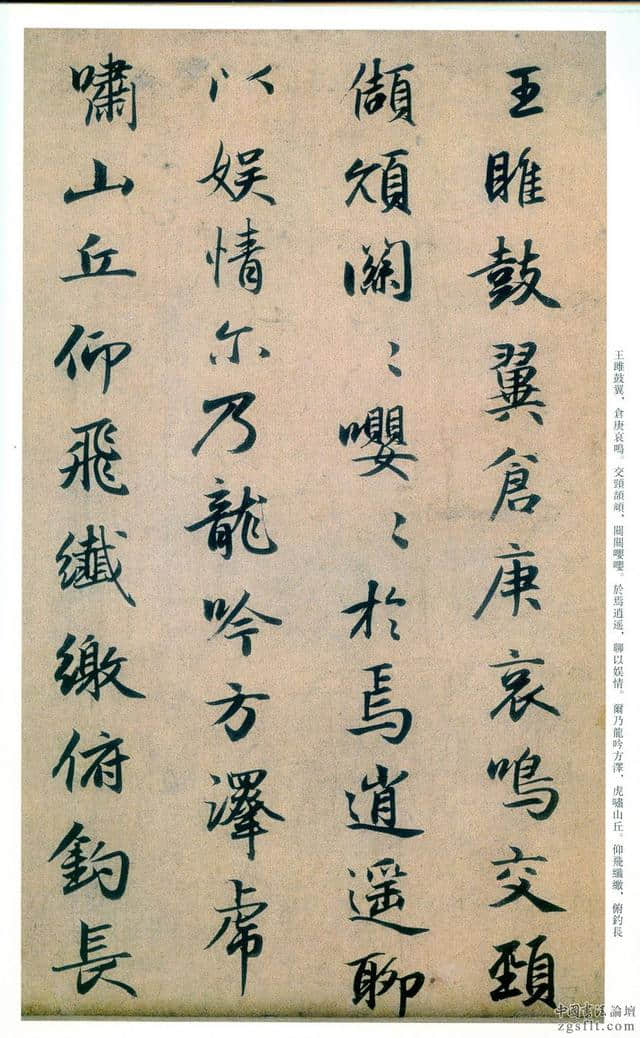 王雎鼓翼倉庚哀鳴交頸
頡頏關〻嚶〻於焉逍遥聊
以娱情尔乃龍吟方澤虎
嘯山丘仰飛纖繳俯釣長
王雎鼓翼、倉庚哀鳴。交頸頡頏、關關嚶嚶。於焉逍遥、聊以娱情。爾乃龍吟方澤、虎嘯山丘。仰飛纖繳、俯釣長
中国书法論壇
zgsflt.com